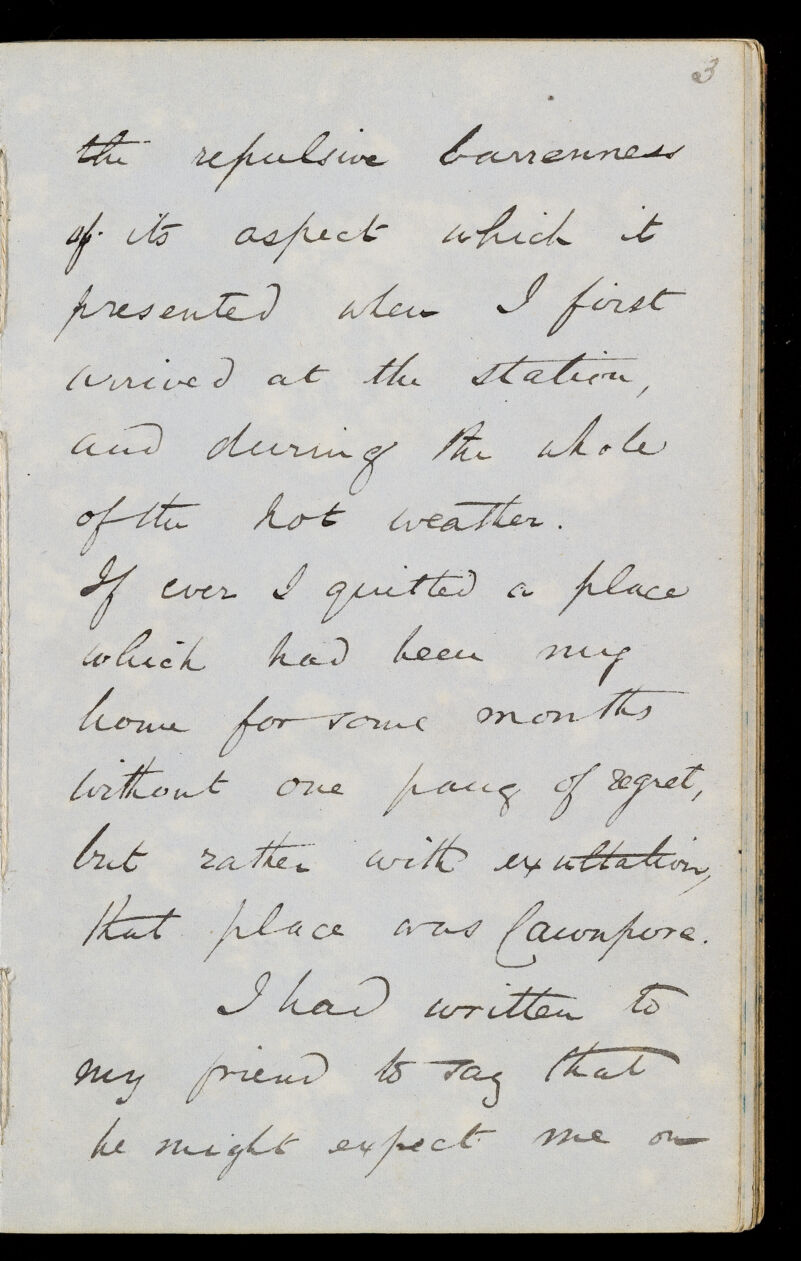 3
the repulsive barrenness
of its aspect which it
presented when I first
arrived at the station,
and during the whole
of the hot weather.
If ever I quitted a place
which had been my
home for some months
without one pang of regret,
but rather with exultation,
that place was Cawnpore.
I had written to
my friend to say that
he might expect me on